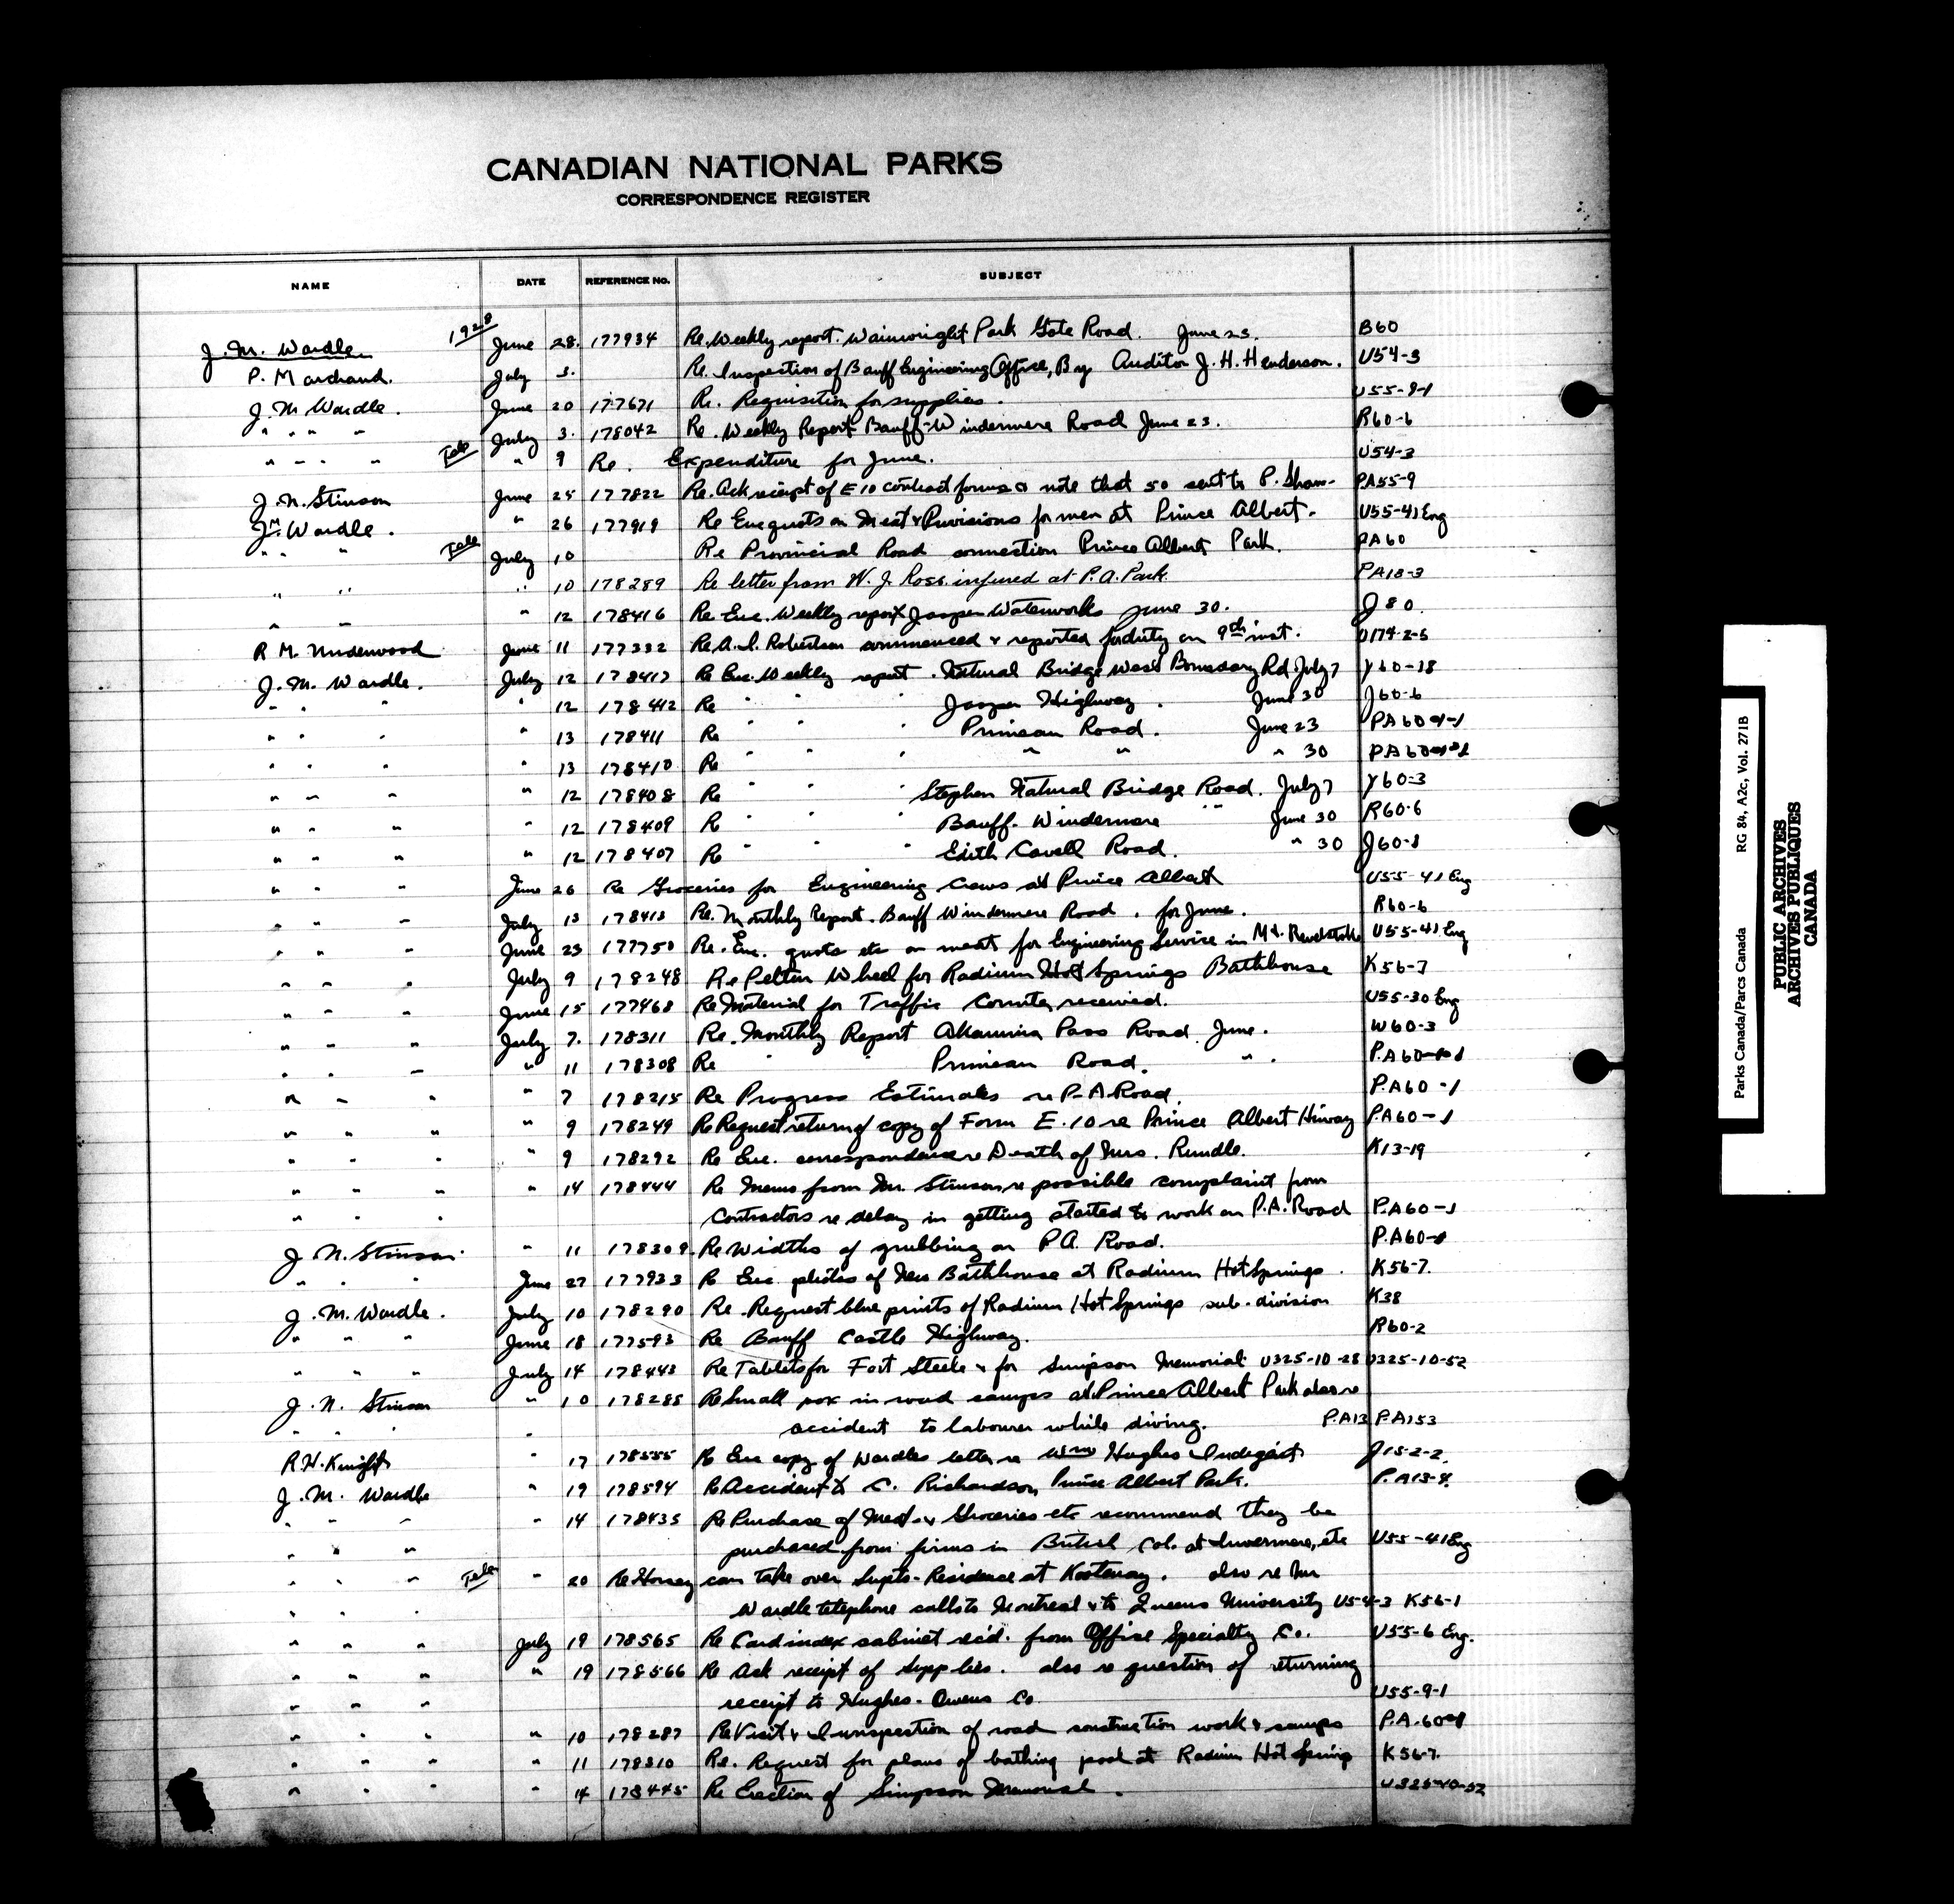 CANADIAN NATIONAL PARKS
CORRESPONDENCE REGISTER
NAME DATE REFERENCE No. SUBJECT
1928
J. M. Wardle June 28. 177934 Re. Weekly report. Wainwright Park Gate Road. June 23. B60
P. Marchand. July 3. Re. Inspection of Banff Engineering Office, By Auditor J. H. Henderson. U54-3
J. M. Wardle. June 20 177671 Re. Requisition for supplies. U55-9-1
" " " " July 3. 178042 Re. Weekly Report Banff-Windermere Road June 23. R60-6
" " " " Tele " 9 Re. Expenditure for June. U54-3
J. N. Stinson June 25 177822 Re. Ack receipt of E 10 contract forms & note that 50 sent to P. Sham- PA55-9
J. M. Wardle. " 26 177919 Re Enc quots on Meat & Provisions for men at Prince Albert. U55-41 Eng
" " " Tele July 10 Re Provincial Road connection Prince Albert Park. PA60
" " " 10 178289 Re letter from W. J. Ross injured at P. A. Park. PA13-3
" " " 12 178416 Re Enc. Weekly report Jasper Waterworks June 30. J80.
R M Underwood June 11 177332 Re A. I. Robertson commenced & reported for duty on 9th inst. U174-2-5
J. M. Wardle. July 12 178417 Re Enc. Weekly report. Natural Bridge West Boundary Rd July 7 Y60-18
" " " " 12 178412 Re " " " Jasper Highway. June 30 J60-6
" " " " 13 178411 Re " " " Primeau Road. June 23 PA60-1
" " " " 13 178410 Re " " " " " " 30 PA60-1
" " " " 12 178408 Re " " " Stephen Natural Bridge Road. July 7 Y60-3
" " " " 12 178409 Re " " " Banff. Windermere " " June 30 R60-6
" " " " 12 178407 Re " " " Edith Cavell Road. " 30 J60-8
" " " June 26 Re Groceries for Engineering Crews at Prince Albert U55-41 Eng
" " " July 13 178413 Re. Monthly Report. Banff Windermere Road. for June. R60-6
" " " June 23 177750 Re. Enc. quots etc on meat for Engineering Service in Mt. Revelstoke U55-41 Eng
" " " July 9 178248 Re Pelton Wheel for Radium Hot Springs Bathhouse K56-7
" " " June 15 177468 Re Material for Traffic Counter, received. U55-30 Eng
" " " July 7. 178311 Re. Monthly Report Akamina Pass Road. June. W60-3
" " " " 11 178308 Re " " Primeau Road. " . P.A60-1
" " " " 7 178215 Re Progress Estimates re P-A Road. P.A60-1
" " " " 9 178249 Re Request return of copy of Form E. 10 re Prince Albert Hiway P.A60-1
" " " " 9 178292 Re Enc. correspondence re Death of Mrs. Rundle. K13-19
" " " " 14 178444 Re Memo from Mr. Stinson re possible complaint from
" " " Contractors re delay in getting started to work on P.A. Road P.A60-1
J N. Stinson. " 11 178309 Re Widths of grubbing on P A. Road. P.A60-1
" " " June 27 177933 Re Enc photos of New Bathhouse at Radium Hot Springs. K56-7.
J. M. Wardle. July 10 178290 Re. Request blue prints of Radium Hot Springs sub-division K38
" " " June 18 177593 Re Banff Castle Highway. R60-2
" " " July 14 178443 Re Tablets for Fort Steele & for Simpson Memorial U325-10-28 U325-10-52
J. N. Stinson " 10 178288 Re Small pox in road camps at Prince Albert Park also re
" " " " accident to labourer while diving. P.A13 P.A153
R. H. Knight " 17 178555 Re Enc copy of Wardles letter re Wm Hughes Indigent J 15-2-2.
J. M. Wardle " 19 178594 Re Accident to C. Richardson, Prince Albert Park. P.A13-4.
" " " " 14 178435 Re Purchase of Meat & Groceries etc recommend they be
" " " purchased from firms in British Col. at Invermere, etc U55-41 Eng
" " " Tele " 20 Re Horsey can take over Supts-Residence at Kootenay. also re Mr
" " " Wardle telephone calls to Montreal & to Queens University U54-3 K56-1
" " " July 19 178565 Re Card index cabinet rec'd. from Office Specialty Co. U55-6 Eng.
" " " " 19 178566 Re Ack receipt of Supplies. also re question of returning
" " " receipt to Hughes-Owens Co. U55-9-1
" " " " 10 178287 Re Visit & Inspection of road construction work & camps P.A.60-1
" " " " 11 178310 Re. Request for plans of bathing pool at Radium Hot Spring K56-7.
" " " " 14 178445 Re Erection of Simpson Memorial. U325-10-52
Parks Canada/Parcs Canada RG 84, A2c, Vol. 271B
PUBLIC ARCHIVES
ARCHIVES PUBLIQUES
CANADA